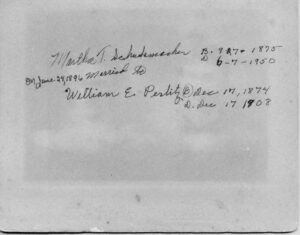 Martha T. Schudemacher B. 9 27 1875
D 6-7-1950
On June 24, 1896 Married to
William E. Pestitz B Dec 17, 1874
D. Dec 17 1908